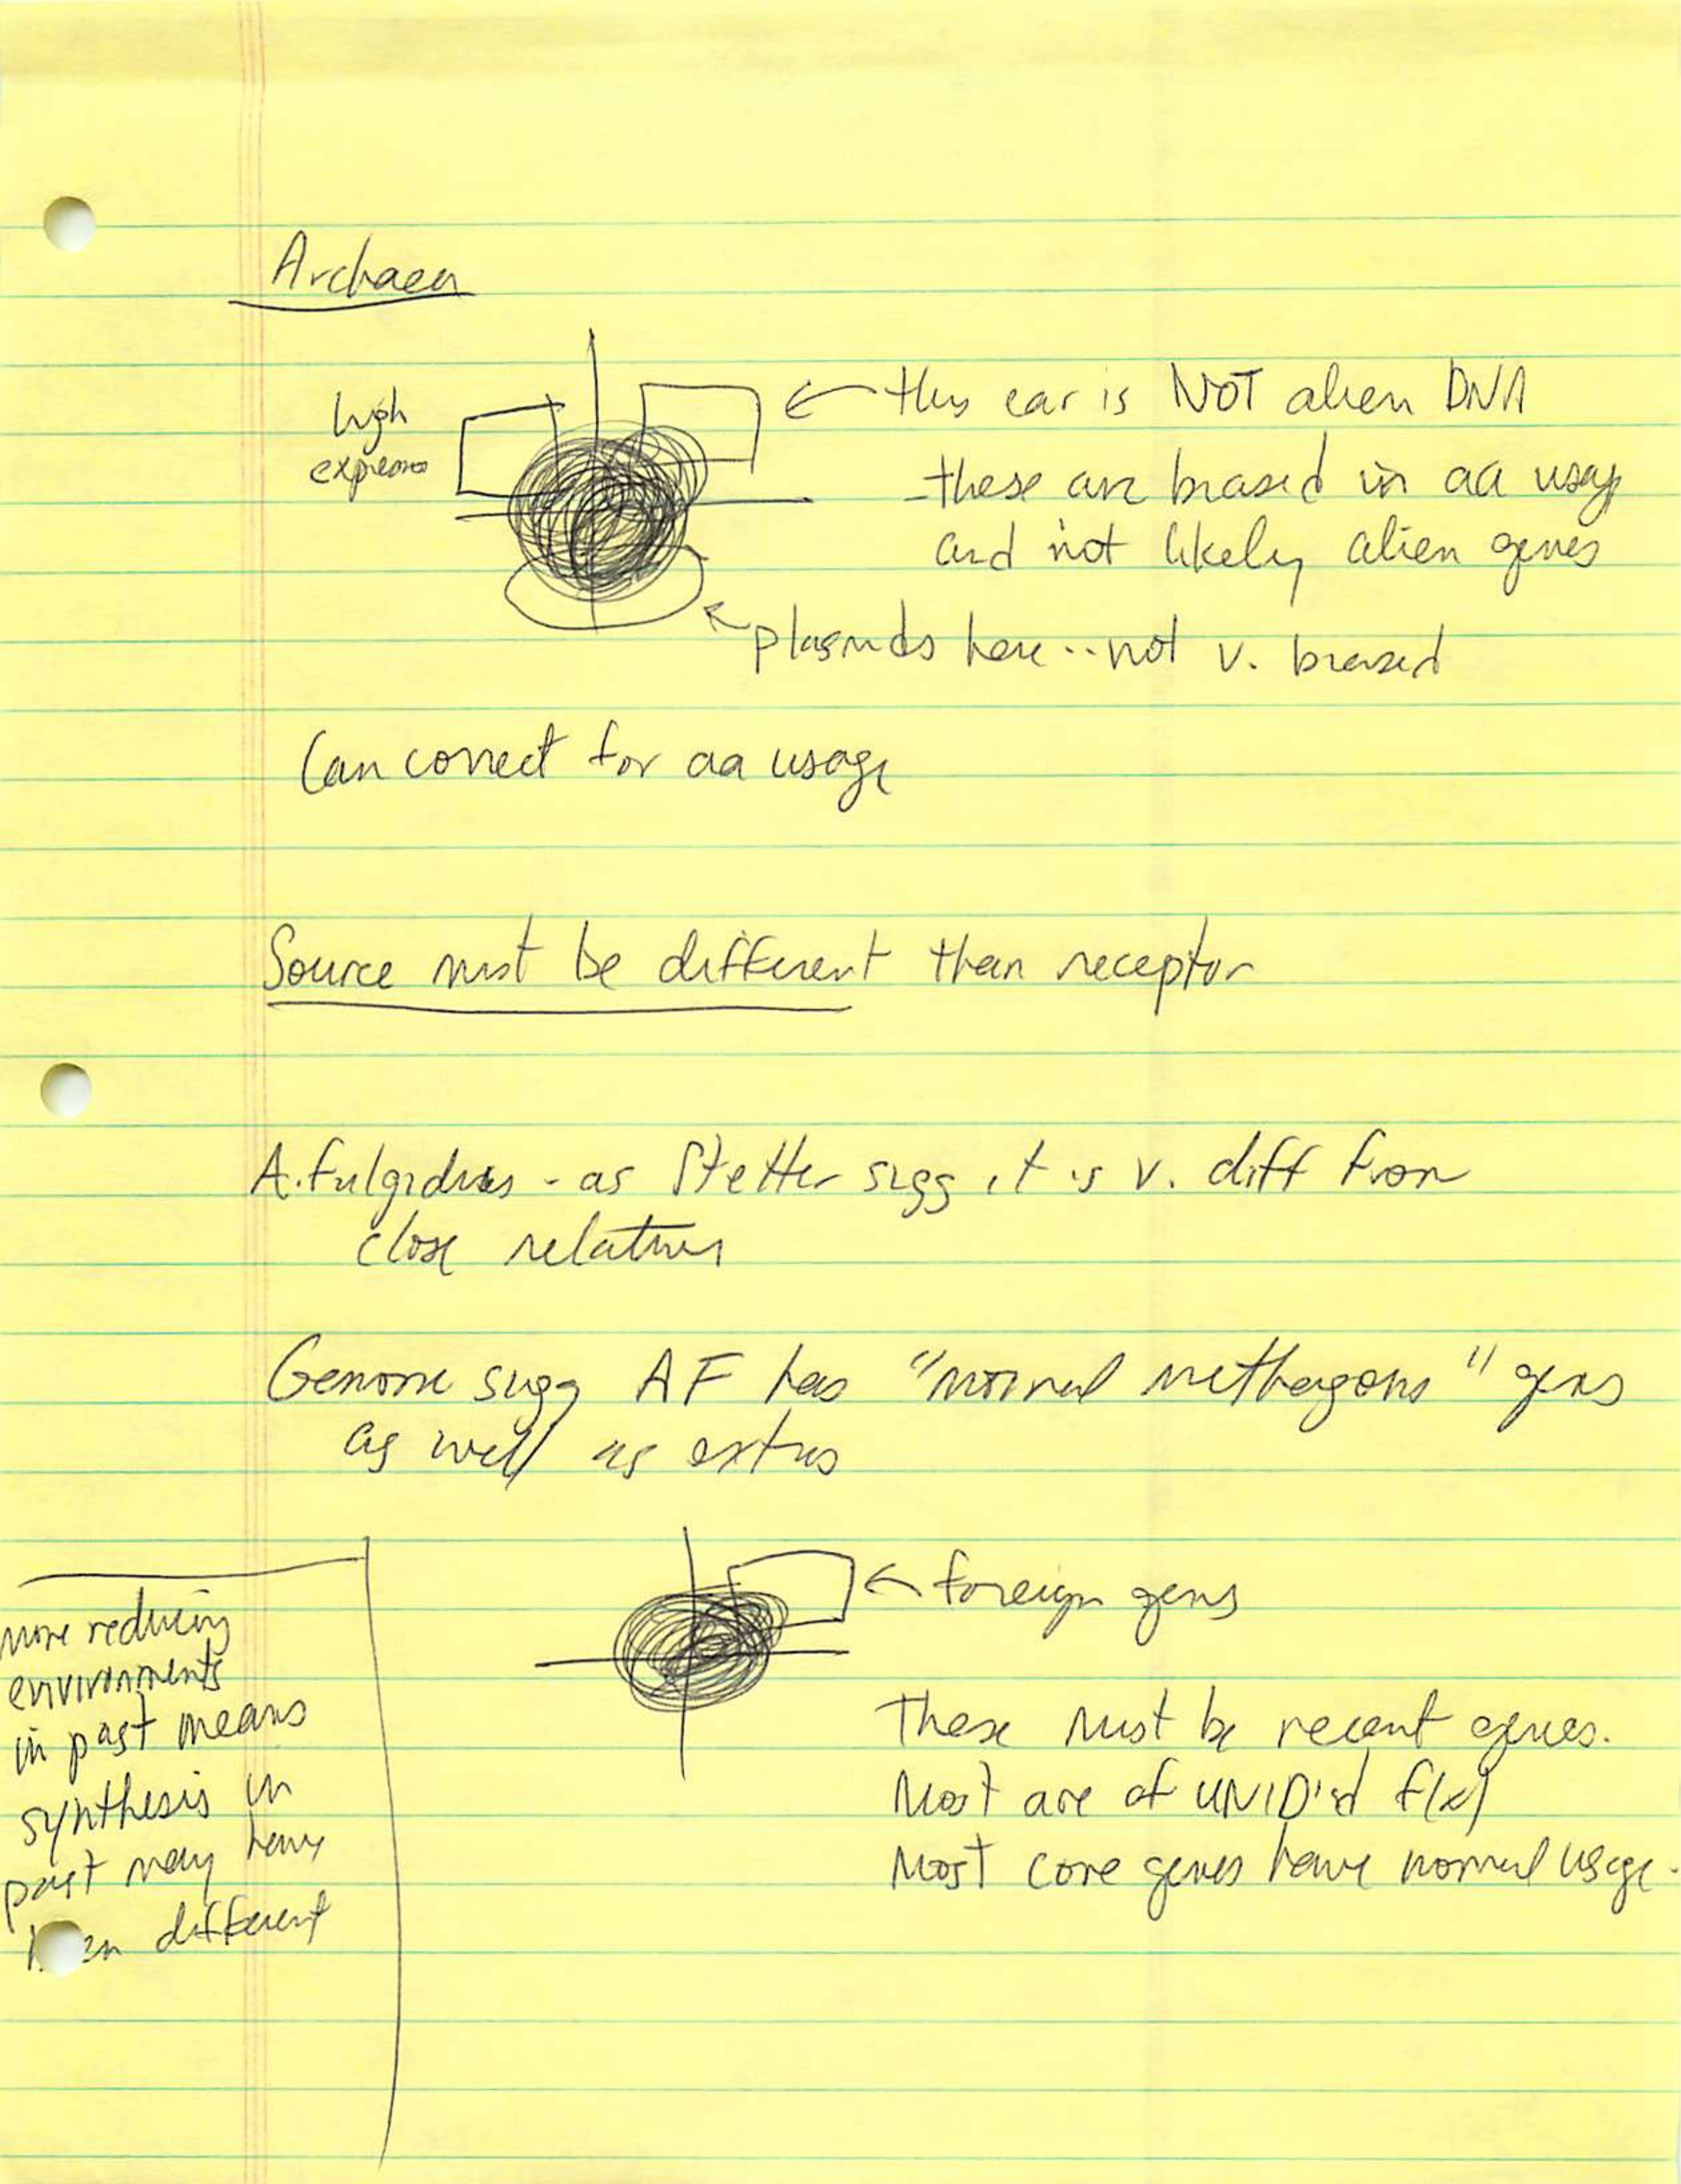 Archaea
high
express
← this ear is NOT alien DNA
- these are biased in aa usage
and not likely alien genes
← plasmids here .. not v. biased
Can correct for aa usage
Source must be different than receptor
A. fulgidus - as Stetter sugg it is v. diff from
close relatives
Genome sugg AF has "normal methagons" genes
as well as extras
← foreign genes
These must be recent genes.
Most are of UNID'd f(x)
Most core genes have normal usage.
more reducing
environments
in past means
synthesis in
past may have
been different